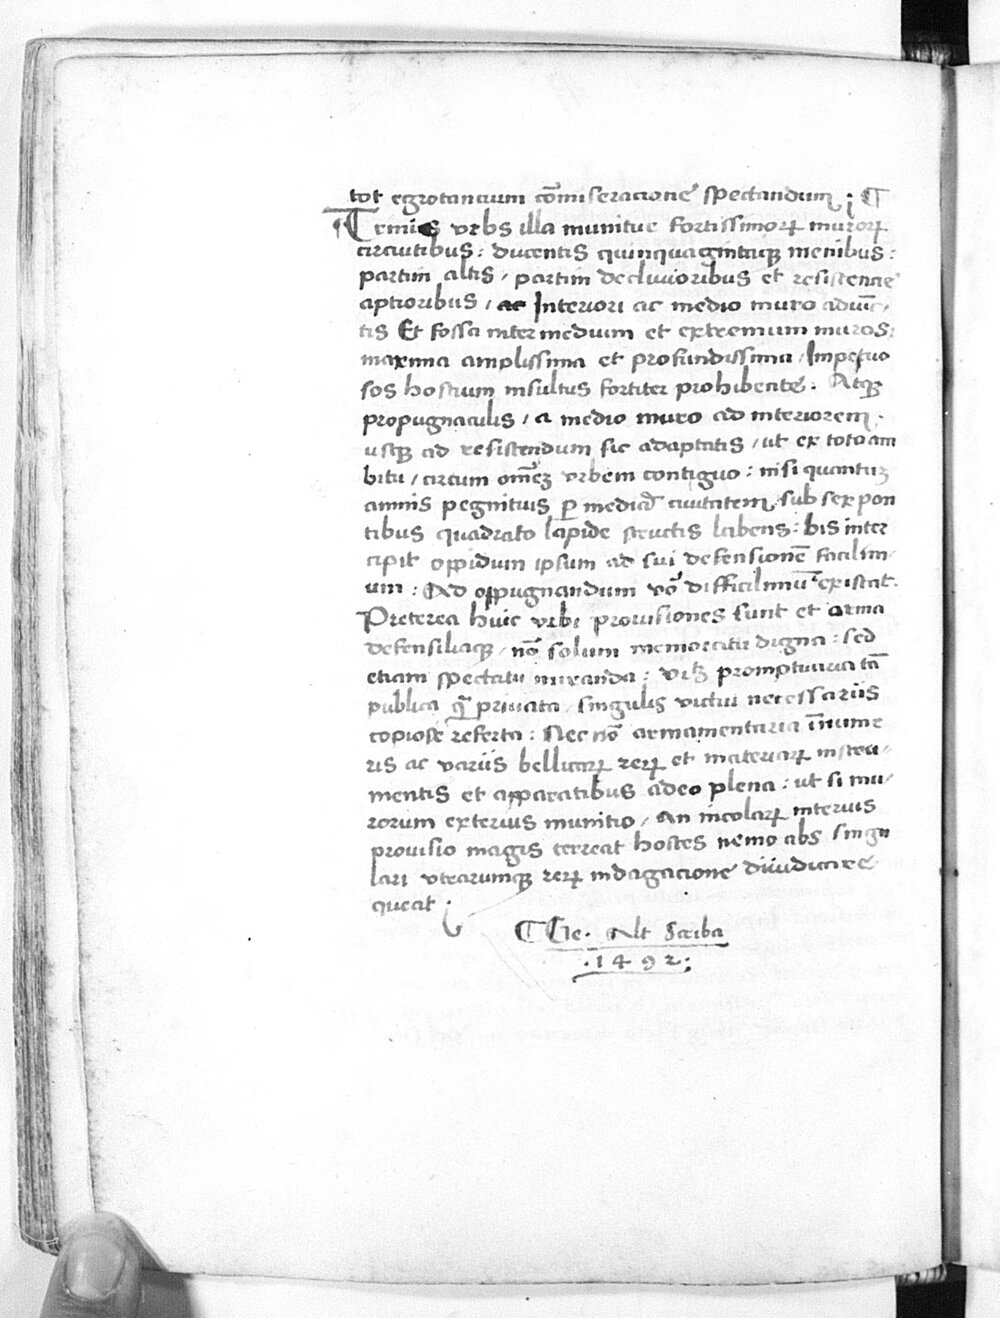 tot egrotancium cōmiseracionē spectandum ; ¶
¶ Trinis vrbs illa munitur fortissimoꝝ muroꝝ
circuitibus : ducentis quinquagintaqꝫ menibus :
partim altis / partim declivioribus et resistencie
aptioribus / ac Interiori ac medio muro adiūc-
tis Et fossa inter medium et extremum muros :
maxima amplissima et profundissima / Impetuo
sos hostium insultus fortiter prohibente : Atqꝫ
propugnaculis / a medio muro ad interiorem .
usqꝫ ad resistendum sic adaptatis / ut ex toto am
bitu / circum omēꝫ vrbem contiguo : nisi quantuꝫ
amnis pegnitius ꝑ mediā civitatem sub sex pon
tibus quadrato lapide structis labens : bis inter
cipit oppidum ipsum ad sui defensionē facilim-
um : Ad oppugnandum vō difficilimū existat .
Preterea huic vrbi provisiones sunt et arma
defensiliaqꝫ / nō solum memoratu digna : sed
etiam spectatu miranda : vidꝫ promptuaria tā
publica ꝙ̄ privata / singulis victui necessariis
copiose referta : Nec nō armamentaria īnume
ris ac variis bellicaꝝ reꝝ et materiaꝝ instru-
mentis et apparatibus adeo plena : ut si mu-
rorum exterius munitio / an incolaꝝ interius
provisio magis terreat hostes nemo abs singu
lari vtrarumqꝫ reꝝ indagacione diiudicare
queat ;
¶ Ge . Alt Scriba
. 1492 ;